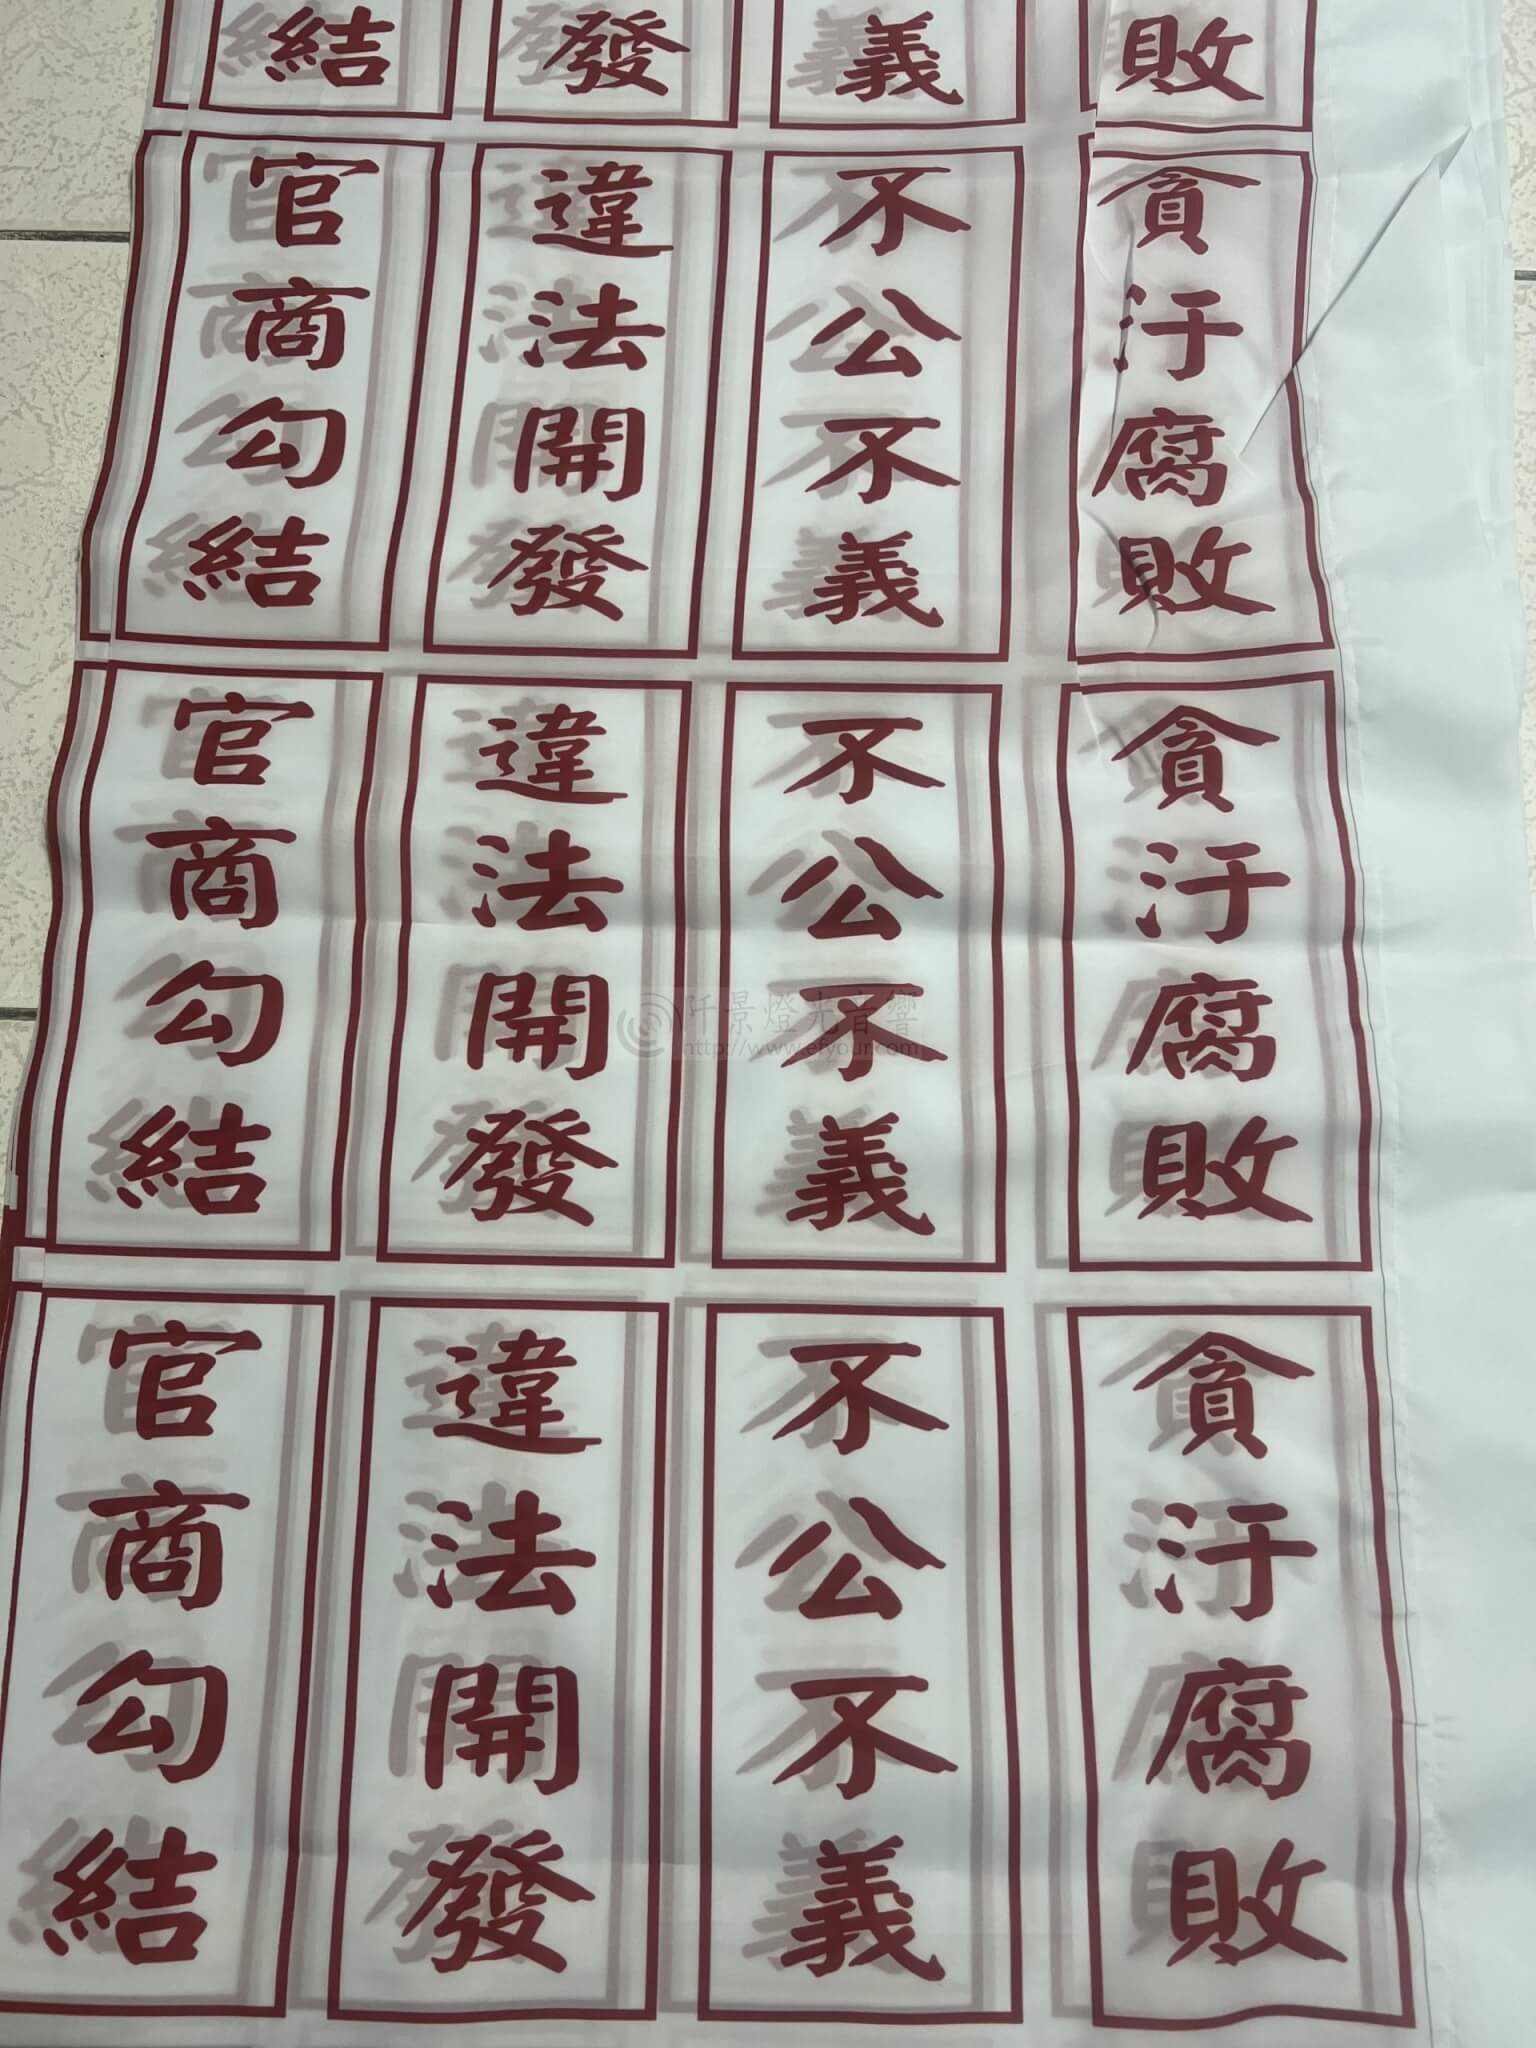 結
發
義
敗
官商勾結
違法開發
不公不義
貪汙腐敗
官商勾結
違法開發
不公不義
貪汙腐敗
官商勾結
違法開發
不公不義
貪汙腐敗
阡景燈光音響
http://www.efyour.com